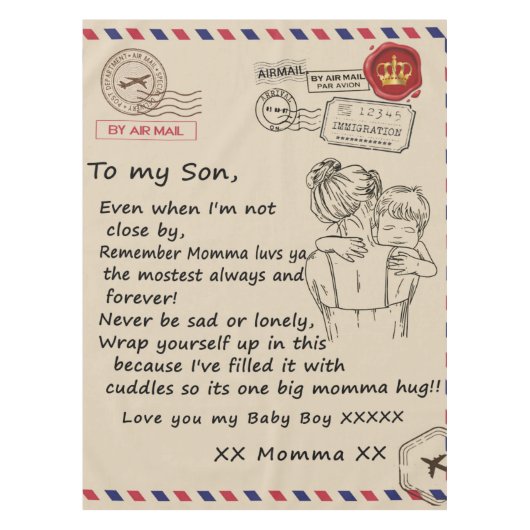 POST DEPARTMENT • AIR MAIL • SPECIAL DELIVERY
BY AIR MAIL
AIRMAIL
BY AIR MAIL
PAR AVION
ARRIVAL
12345
IMMIGRATION
To my Son,
Even when I'm not
close by,
Remember Momma luvs ya
the mostest always and
forever!
Never be sad or lonely,
Wrap yourself up in this
because I've filled it with
cuddles so its one big momma hug!!
Love you my Baby Boy XXXXX
XX Momma XX